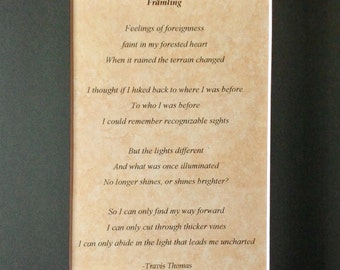 Främling
Feelings of foreignness
faint in my forested heart
When it rained the terrain changed
I thought if I hiked back to where I was before
To who I was before
I could remember recognizable sights
But the lights different
And what was once illuminated
No longer shines, or shines brighter?
So I can only find my way forward
I can only cut through thicker vines
I can only abide in the light that leads me uncharted
-Travis Thomas